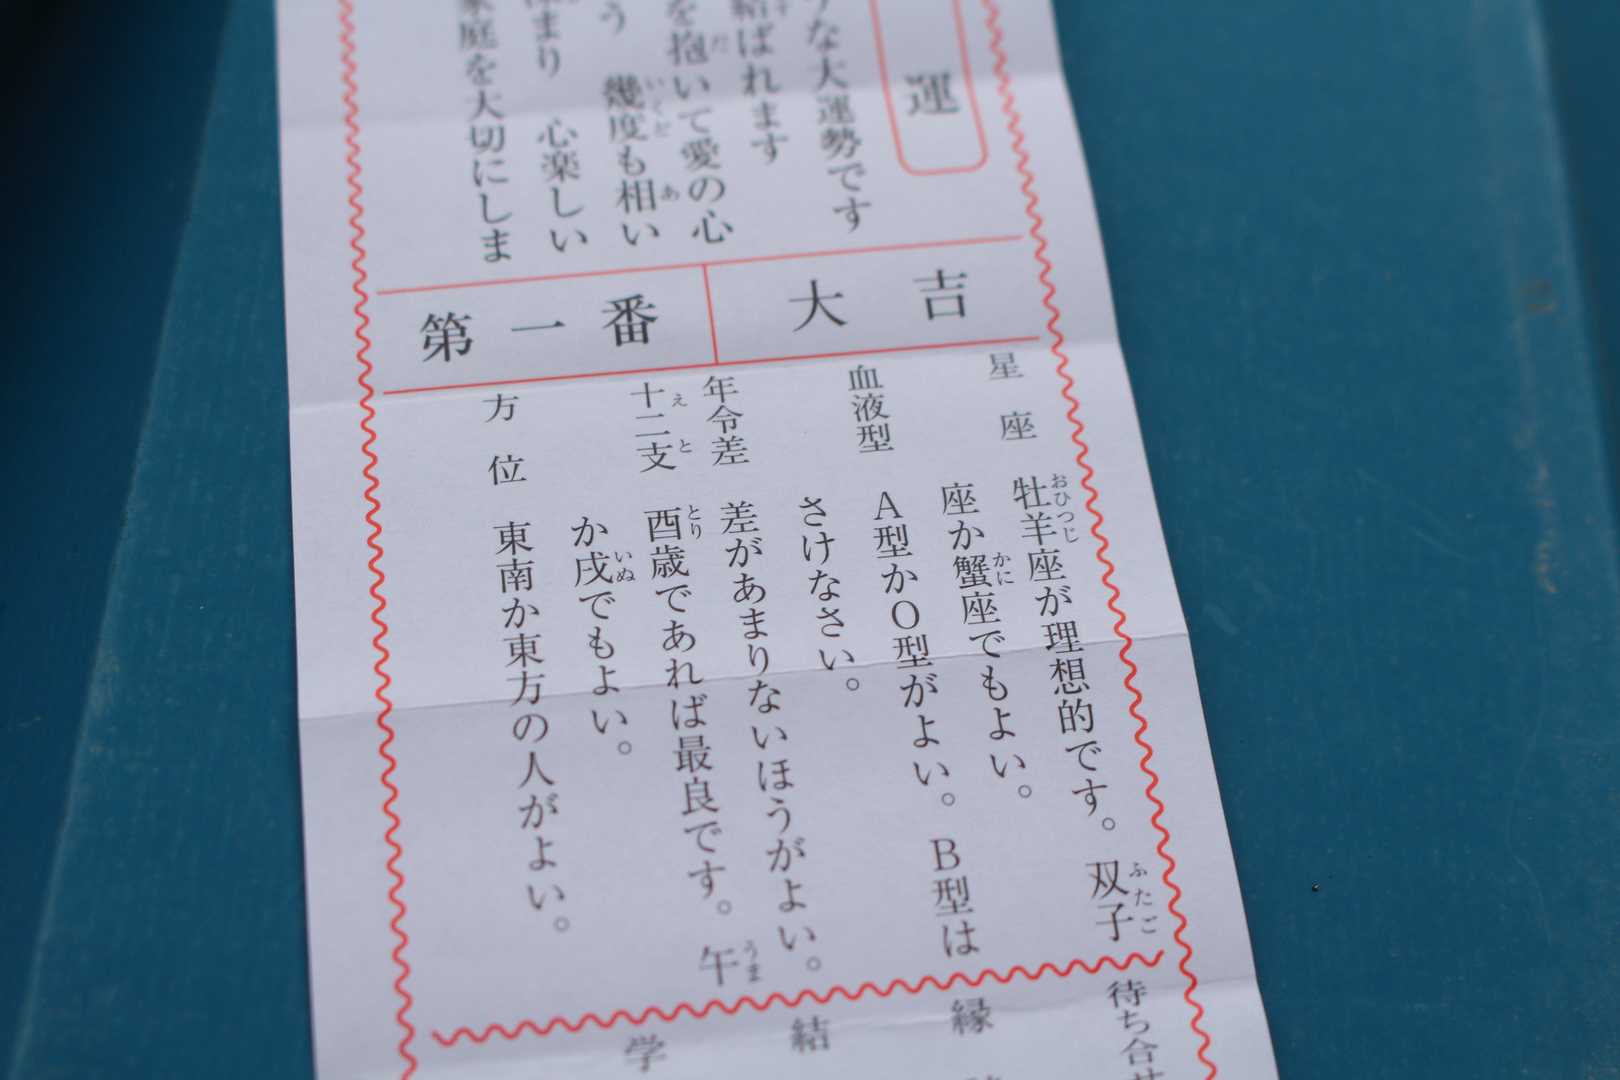 運
な大運勢です
結ばれます
を抱いて愛の心
う　幾度も相い
まり　心楽しい
家庭を大切にしま
第一番
大吉
星座　牡羊座が理想的です。双子
座か蟹座でもよい。
血液型　A型かO型がよい。B型は
さけなさい。
年令差　差があまりないほうがよい。
十二支　酉歳であれば最良です。午
か戌でもよい。
方位　東南か東方の人がよい。
待ち合せ
縁
結
学